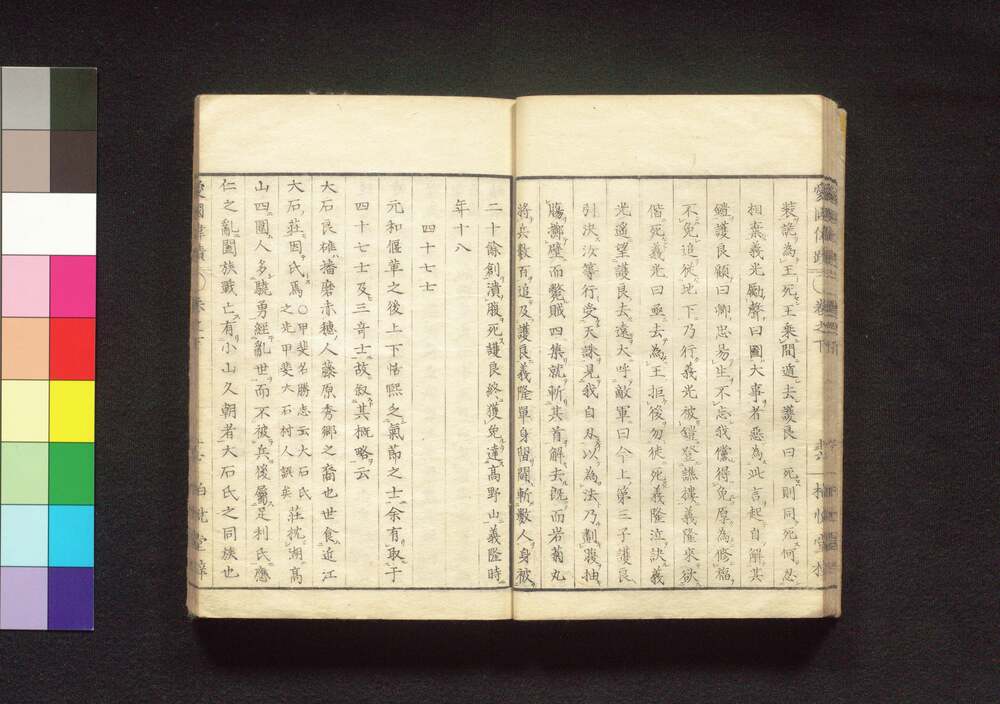 裝詭為王死王乘間遁去護良曰死則同死何忍
相棄義光勵聲曰圖大事者惡為此言起自解其
鎧護良顧曰卿忠易止不忘我儻得免厚為修福
不免追從地下乃行義光被鎧登譙樓義隆來欲
偕死義光曰亟去為王拒後勿徒死義隆泣訣義
光遙望護良去遠大呼敵軍曰今上第三子護良
引決汝等行受天誅見我自刄以為法乃劃腹抽
腸擲壁而斃賊四集就斬其首解去既而岩菊丸
將兵數百追及護良義隆單身留鬪斬數人身被
二十餘創潰腹死護良終獲免達高野山義隆時
年十八
四十七士
元和偃革之後上下恬熙之氣節之士余有取于
四十七士及三奇士故叙其概略云
大石良雄播磨赤穗人藤原秀鄉之裔也世食近江
大石莊因氏焉
〇甲斐名勝志云大石氏
之先甲斐大石村人誤矣
莊枕湖高
山四圍人多驍勇經亂世而不被兵後屬足利氏應
仁之亂闔族戰亡有小山久朝者大石氏之同族也
卷之下